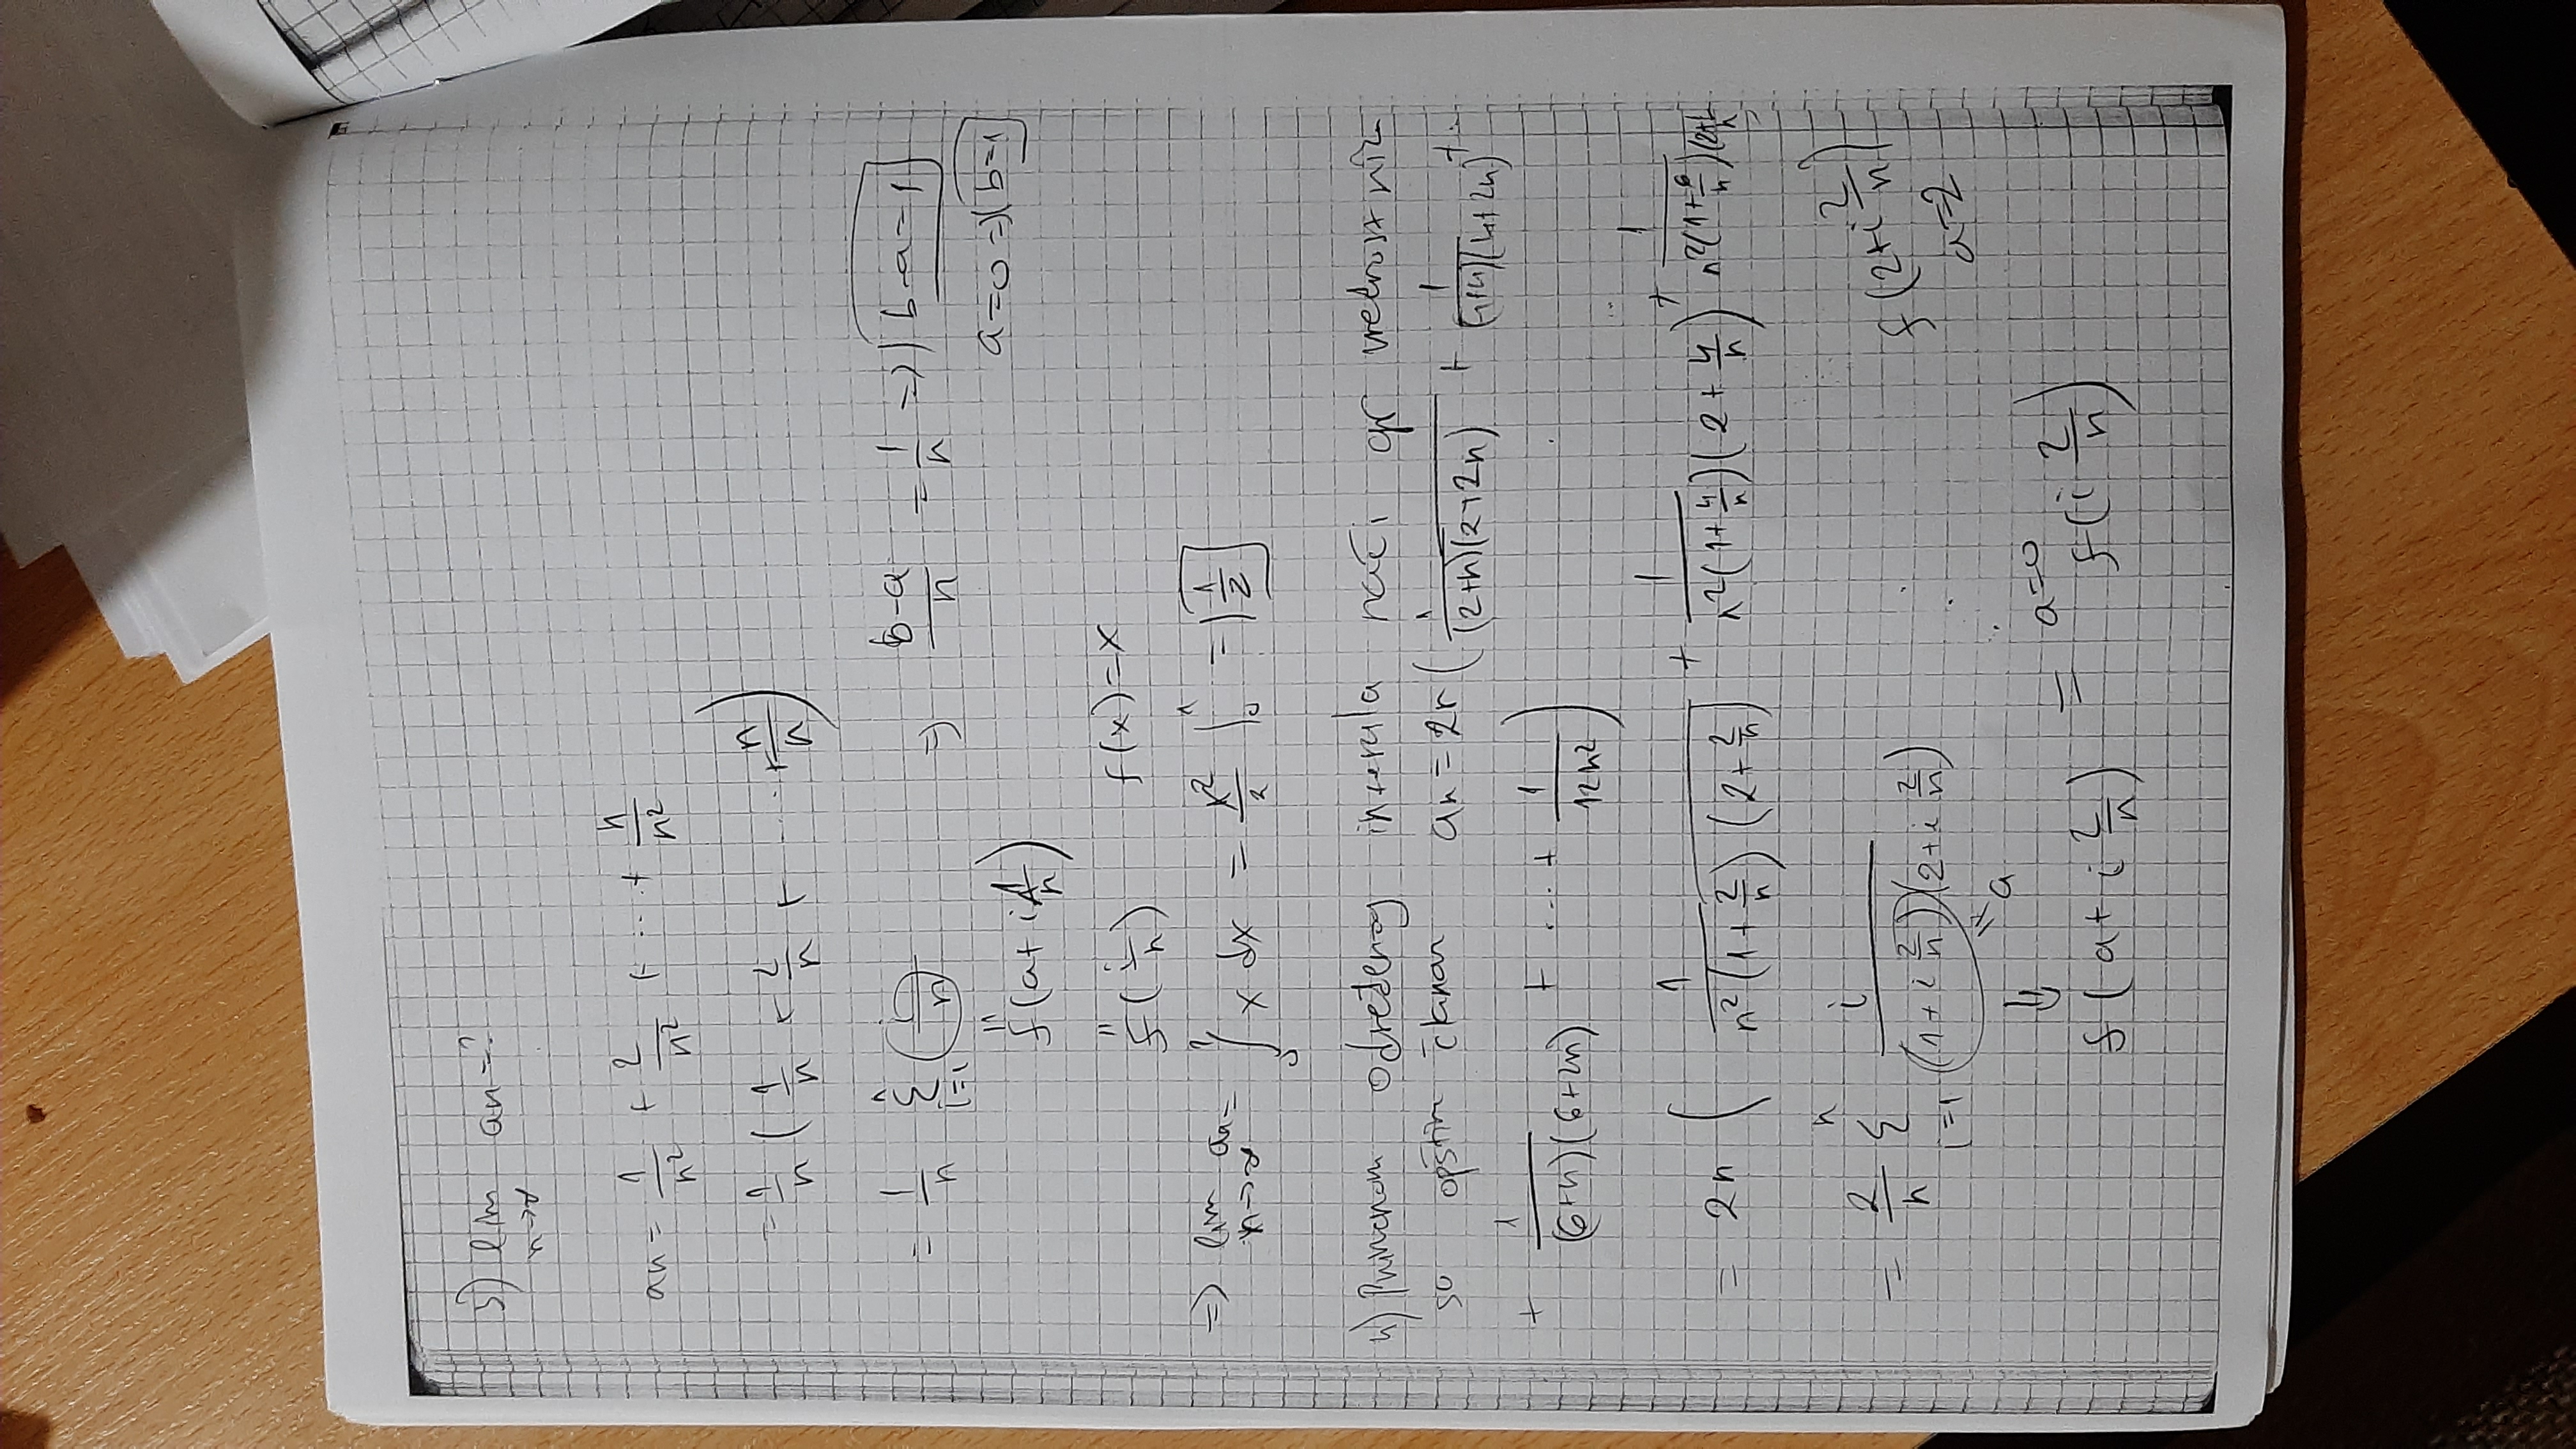 3) lim an=?
n→∞
an = 1/n² + 2/n² + ... + n/n²
= 1/n ( 1/n + 2/n + ... + n/n )
= 1/n Σ i=1 n ( i/n ) ⇒ b-a/n = 1/n ⇒ b-a=1
a=0 ⇒ b=1
" f(a + i 1/n )
" f( i/n ) f(x)=x
⇒ lim n→∞ an = ∫ 0 1 x dx = x²/2 | 0 1 = 1/2
4) odreženog naći gr vrednost
so opštim članam an = 2n ( 1/(2+n)(2+2n) + 1/(4+n)(4+2n) + ..
+ 1/(6+n)(6+2n) + ... + 1/12n² )
= 2n ( 1/n²(1+2/n)(2+2/n) + 1/n²(1+4/n)(2+4/n) + 1/n²(1+6/n)
= 2/n Σ i=1 n i/(1+i 2/n)(2+i 2/n) f(2+i 2/n)
" a a=2
⇓ a=0
f( a+ i 2/n ) = f( i 2/n )